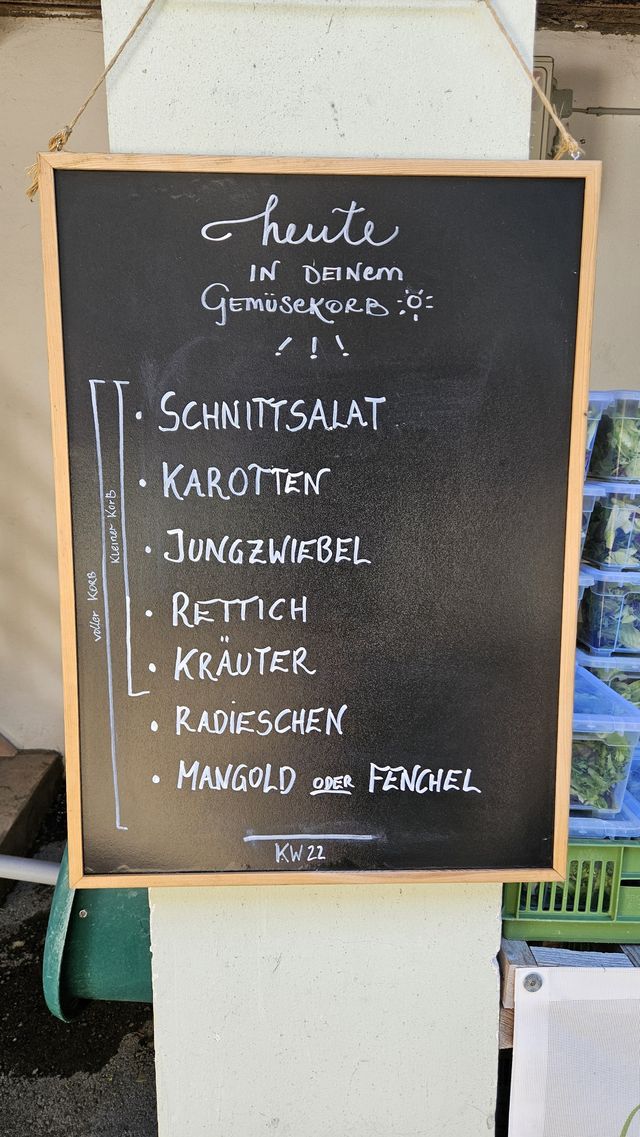 heute
IN DEINEM
GEMÜSEKORB
! ! !
voller KORB
Kleiner KORB
• SCHNITTSALAT
• KAROTTEN
• JUNGZWIEBEL
• RETTICH
• KRÄUTER
• RADIESCHEN
• MANGOLD ODER FENCHEL
KW 22